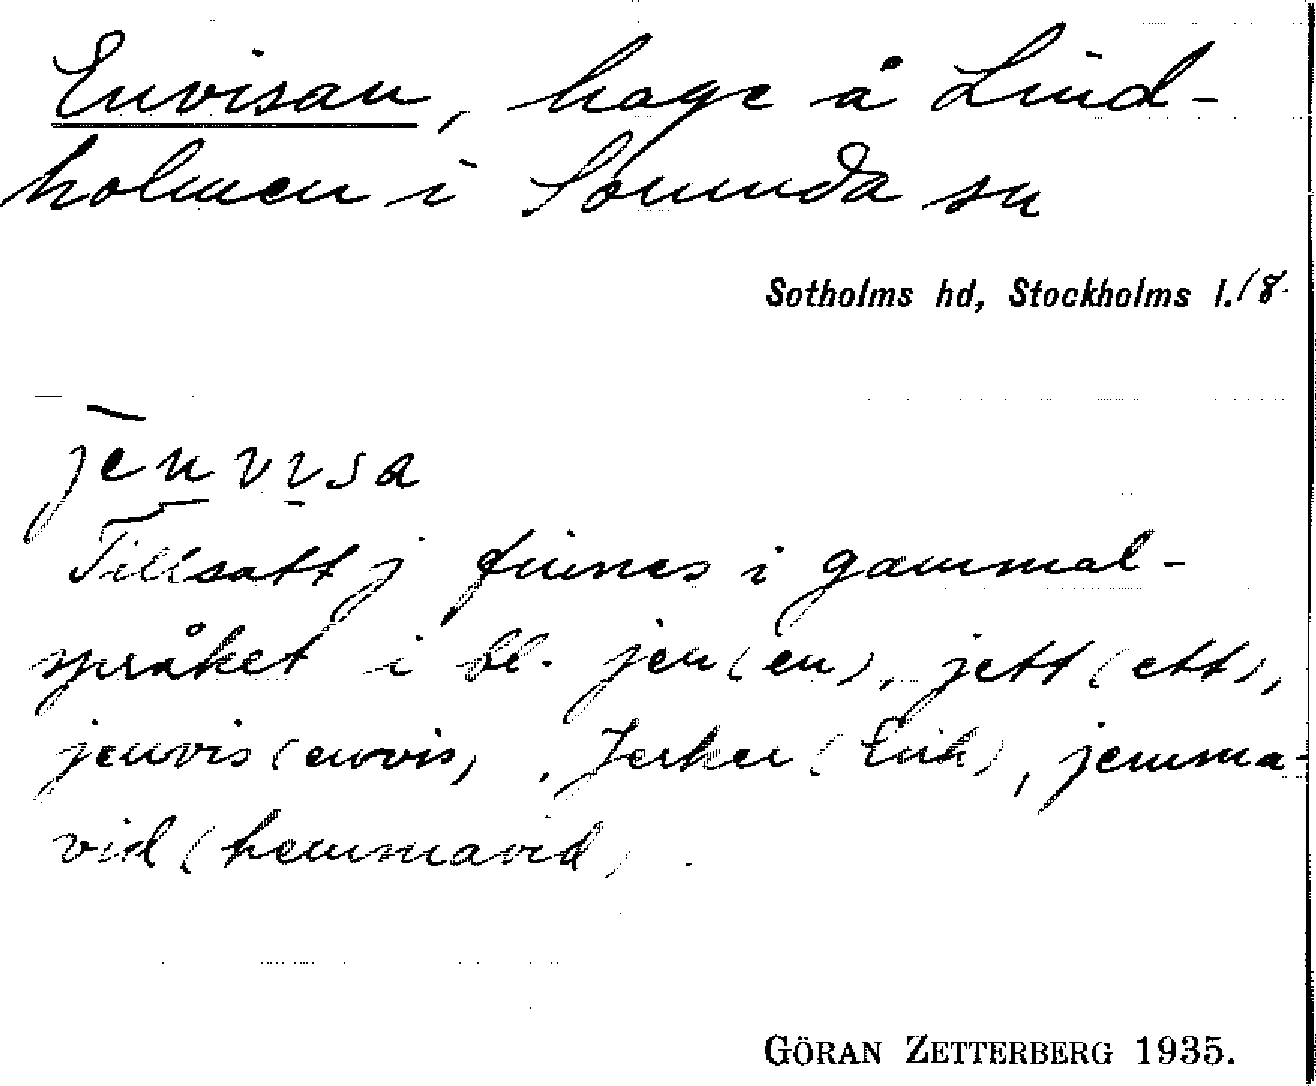 Envisan, hage å Lind-
holmen i Sorunda sn
Sotholms hd, Stockholms l. 18
jenvisa
Tillsatt j finnes i gammal-
språket i bl. jen (en), jett (ett),
jenvis (envis), Jerker (Erik), jemma-
vid (hemmavid).
GÖRAN ZETTERBERG 1935.